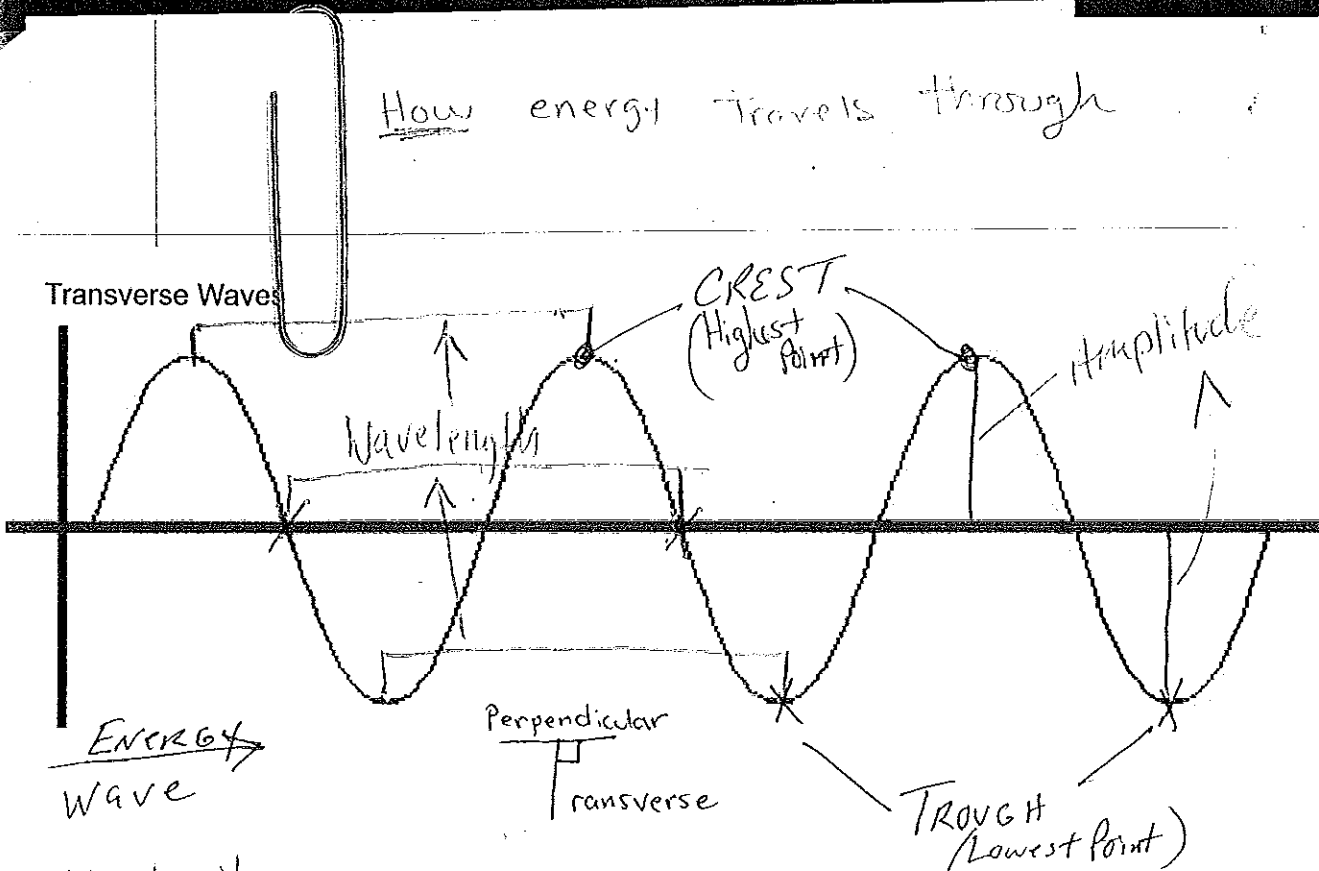 How energy Travels through
Transverse Waves
CREST
(Highest
Point)
Amplitude
Wavelength
ENERGY
Wave
Perpendicular
Transverse
TROUGH
(Lowest Point)